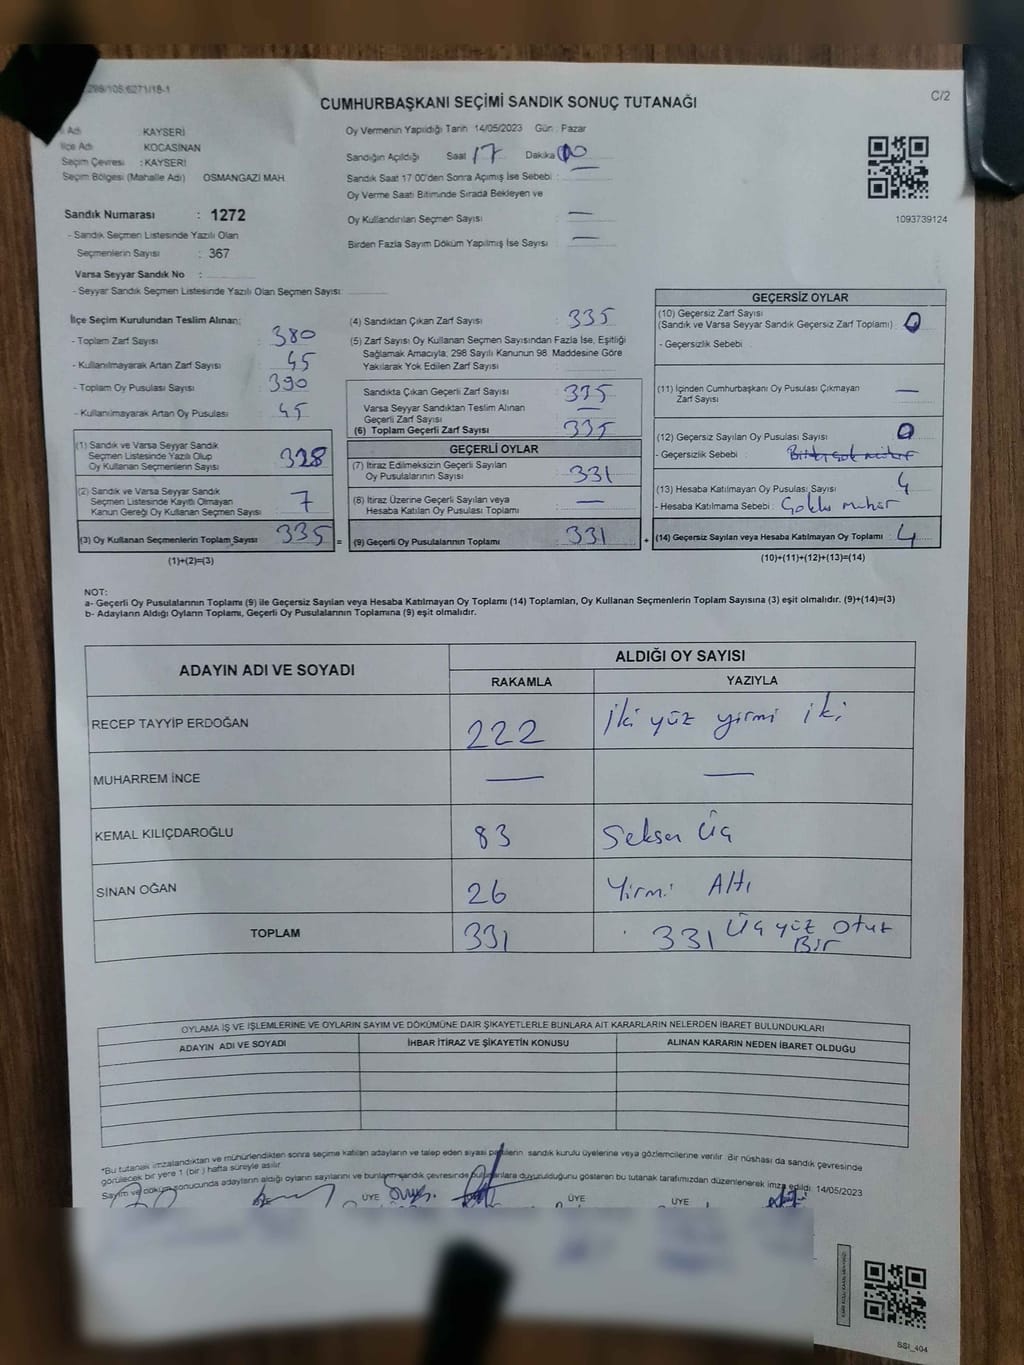 298/108.6271/18-1
CUMHURBAŞKANI SEÇİMİ SANDIK SONUÇ TUTANAĞI
C/2
Adı KAYSERİ
İlçe Adı KOCASİNAN
Seçim Çevresi : KAYSERİ
Seçim Bölgesi (Mahalle Adı) OSMANGAZİ MAH
Sandık Numarası : 1272
- Sandık Seçmen Listesinde Yazılı Olan
Seçmenlerin Sayısı : 367
Varsa Seyyar Sandık No :
- Seyyar Sandık Seçmen Listesinde Yazılı Olan Seçmen Sayısı:
Oy Vermenin Yapıldığı Tarih 14/05/2023 Gün : Pazar
Sandığın Açıldığı Saat 17 Dakika 00
Sandık Saat 17 00'den Sonra Açımış İse Sebebi :
Oy Verme Saati Bitiminde Sırada Bekleyen ve
Oy Kullandırılan Seçmen Sayısı —
Birden Fazla Sayım Döküm Yapılmış İse Sayısı —
1093739124
İlçe Seçim Kurulundan Teslim Alınan:
- Toplam Zarf Sayısı : 380
- Kullanılmayarak Artan Zarf Sayısı : 45
- Toplam Oy Pusulası Sayısı : 390
- Kullanılmayarak Artan Oy Pusulası : 45
(1) Sandık ve Varsa Seyyar Sandık
Seçmen Listesinde Yazılı Olup
Oy Kullanan Seçmenlerin Sayısı 328
(2) Sandık ve Varsa Seyyar Sandık
Seçmen Listesinde Kayıtlı Olmayan
Kanun Gereği Oy Kullanan Seçmen Sayısı 7
(3) Oy Kullanan Seçmenlerin Toplam Sayısı 335 =
(1)+(2)=(3)
(4) Sandıktan Çıkan Zarf Sayısı : 335
(5) Zarf Sayısı Oy Kullanan Seçmen Sayısından Fazla İse, Eşitliği
Sağlamak Amacıyla, 298 Sayılı Kanunun 98. Maddesine Göre
Yakılarak Yok Edilen Zarf Sayısı :
Sandıkta Çıkan Geçerli Zarf Sayısı : 335
Varsa Seyyar Sandıktan Teslim Alınan
Geçerli Zarf Sayısı : —
(6) Toplam Geçerli Zarf Sayısı : 335
GEÇERLİ OYLAR
(7) İtiraz Edilmeksizin Geçerli Sayılan
Oy Pusulalarının Sayısı : 331
(8) İtiraz Üzerine Geçerli Sayılan veya
Hesaba Katılan Oy Pusulası Toplamı : —
(9) Geçerli Oy Pusulalarının Toplamı : 331 +
GEÇERSİZ OYLAR
(10) Geçersiz Zarf Sayısı
(Sandık ve Varsa Seyyar Sandık Geçersiz Zarf Toplamı) : 0
- Geçersizlik Sebebi :
(11) İçinden Cumhurbaşkanı Oy Pusulası Çıkmayan
Zarf Sayısı : —
(12) Geçersiz Sayılan Oy Pusulası Sayısı : 0
- Geçersizlik Sebebi :
(13) Hesaba Katılmayan Oy Pusulası Sayısı : 4
- Hesaba Katılmama Sebebi : Çoklu mühür
(14) Geçersiz Sayılan veya Hesaba Katılmayan Oy Toplamı : 4
(10)+(11)+(12)+(13)=(14)
NOT:
a- Geçerli Oy Pusulalarının Toplamı (9) ile Geçersiz Sayılan veya Hesaba Katılmayan Oy Toplamı (14) Toplamları, Oy Kullanan Seçmenlerin Toplam Sayısına (3) eşit olmalıdır. (9)+(14)=(3)
b- Adayların Aldığı Oyların Toplamı, Geçerli Oy Pusulalarının Toplamına (9) eşit olmalıdır.
ADAYIN ADI VE SOYADI
ALDIĞI OY SAYISI
RAKAMLA YAZIYLA
RECEP TAYYİP ERDOĞAN 222 İki yüz yirmi iki
MUHARREM İNCE — —
KEMAL KILIÇDAROĞLU 83 Seksen Üç
SİNAN OĞAN 26 Yirmi Altı
TOPLAM 331 331 Üç yüz Otuz
Bir
OYLAMA İŞ VE İŞLEMLERİNE VE OYLARIN SAYIM VE DÖKÜMÜNE DAİR ŞİKAYETLERLE BUNLARA AİT KARARLARIN NELERDEN İBARET BULUNDUKLARI
ADAYIN ADI VE SOYADI İHBAR İTİRAZ VE ŞİKAYETİN KONUSU ALINAN KARARIN NEDEN İBARET OLDUĞU
*Bu tutanak imzalandıktan ve mühürlendikten sonra seçime katılan adayların ve talep eden siyasi partilerin sandık kurulu üyelerine veya gözlemcilerine verilir. Bir nüshası da sandık çevresinde
görülecek bir yere 1 (bir ) hafta süreyle asılır
Sayım ve döküm sonucunda adayların aldığı oyların sayılarını ve bunların sandık çevresinde bulunanlara duyurulduğunu gösteren bu tutanak tarafımızdan düzenlenerek imza edildi. 14/05/2023
ÜYE ÜYE ÜYE ÜYE
SSI_404